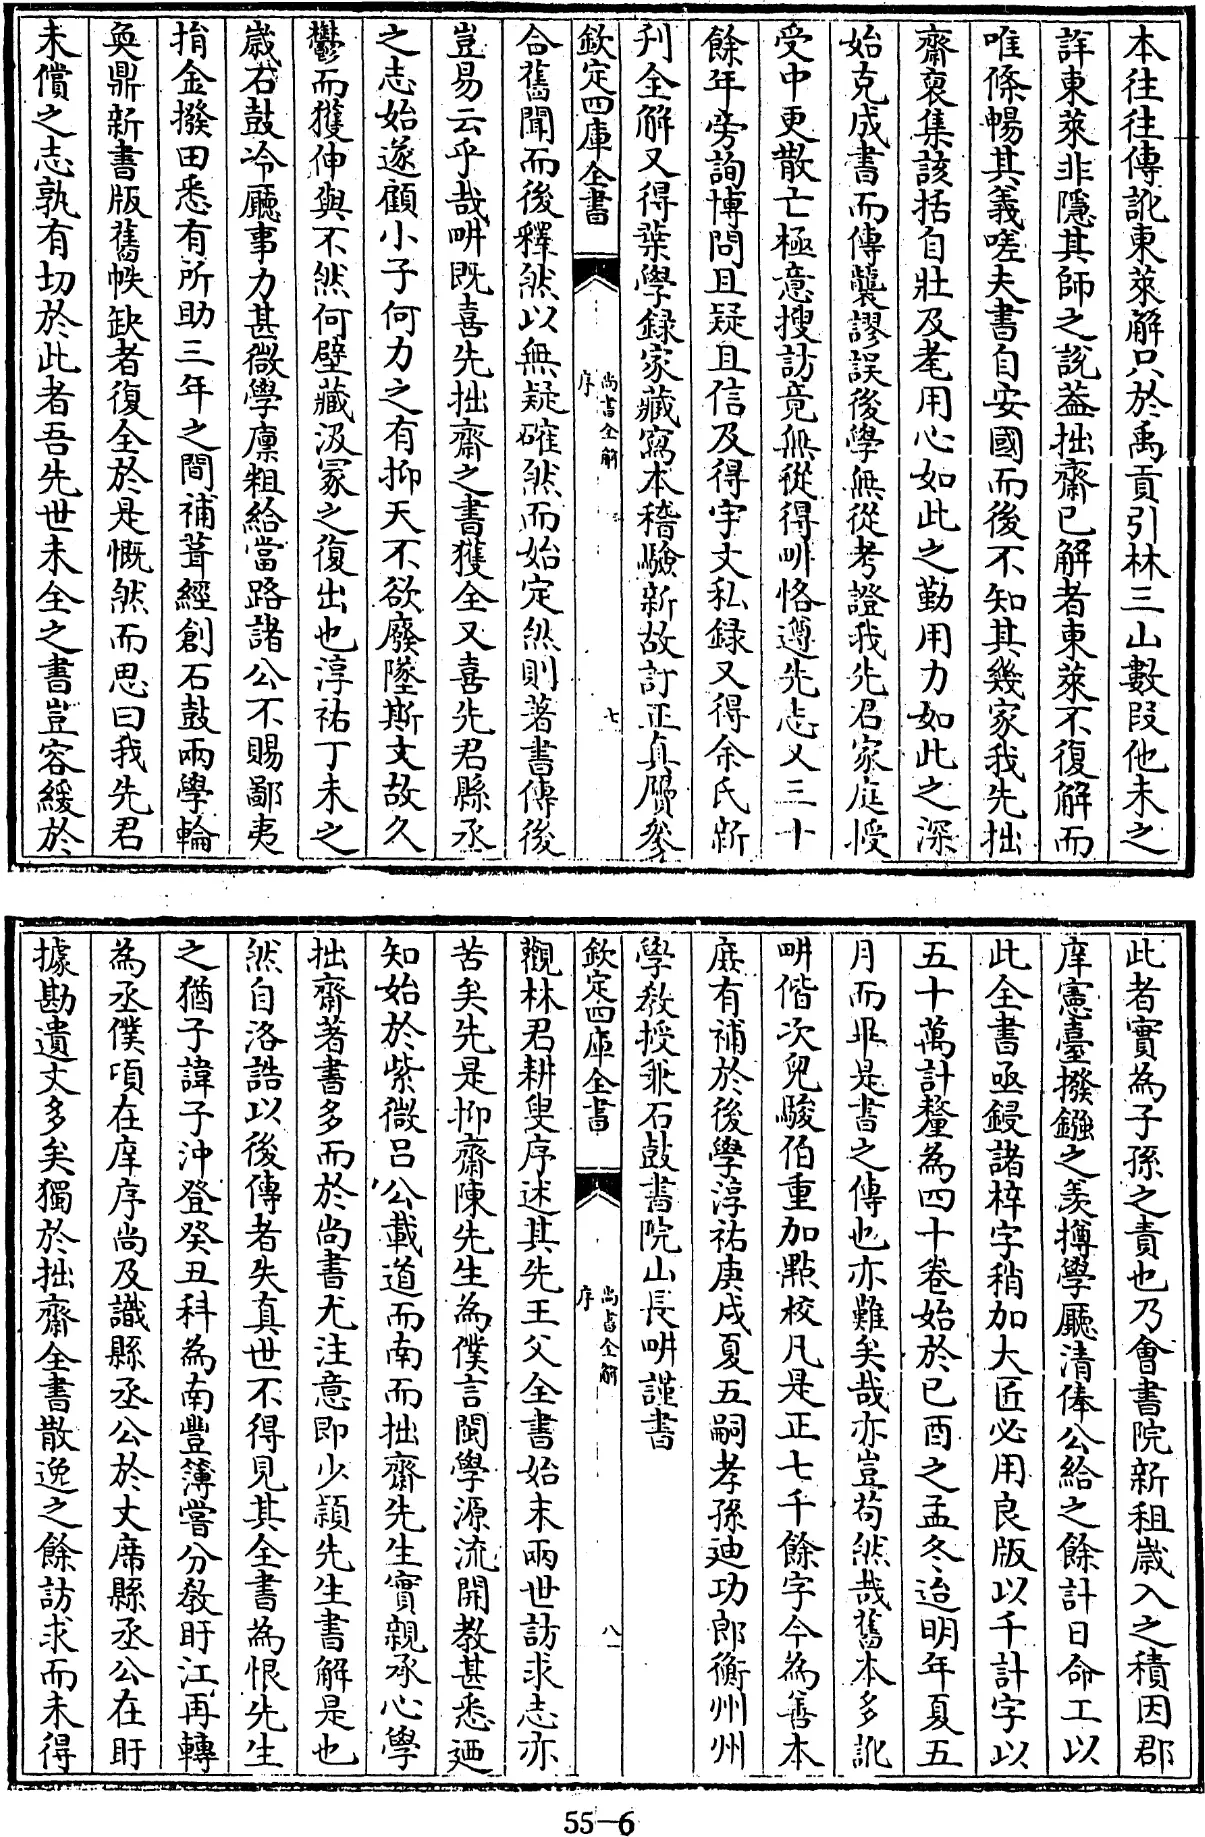 本往往傳訛東萊解只於禹貢引林三山數段他未之
詳東萊非隱其師之説葢拙齋已解者東萊不復解而
唯條暢其義嗟夫書自安國而後不知其幾家我先拙
齋裒集該括自壯及耄用心如此之勤用力如此之深
始克成書而傳襲謬誤後學無從考證我先君家庭授
受中更散亡極意搜訪竟無從得畊恪遵先志又三十
餘年旁詢博問且疑且信及得宇文私録又得余氏新
刋全解又得葉學録家藏寫本稽驗新故訂正真贋參
欽定四庫全書
尚書全解
序
七
合舊聞而後釋然以無疑確然而始定然則著書傳後
豈易云乎哉畊既喜先拙齋之書獲全又喜先君縣丞
之志始遂顧小子何力之有抑天不欲廢墜斯文故久
鬱而獲伸與不然何壁藏汲冡之復出也淳祐丁未之
嵗石鼓冷廳事力甚微學廪粗給當路諸公不賜鄙夷
捐金撥田悉有所助三年之間補葺經創石鼓兩學輪
奐鼎新書版舊帙缺者復全於是慨然而思曰我先君
未償之志孰有切於此者吾先世未全之書豈容緩於
此者實為子孫之責也乃會書院新租歳入之積因郡
庠憲臺撥鏹之羨撙學廳清俸公給之餘計日命工以
此全書亟鋟諸梓字稍加大匠必用良版以千計字以
五十萬計釐為四十卷始於己酉之孟冬迨明年夏五
月而畢是書之傳也亦難矣哉亦豈茍然哉舊本多訛
畊偕次兒駿伯重加點校凡是正七千餘字今為善本
庶有補於後學淳祐庚戌夏五嗣孝孫迪功郎衡州州
學教授兼石鼓書院山長畊謹書
欽定四庫全書
尚書全解
序
八
觀林君耕叟序述其先王父全書始末兩世訪求志亦
苦矣先是抑齋陳先生為僕言閩學源流開教甚悉廼
知始於紫微吕公載道而南而拙齋先生實親承心學
拙齋著書多而於尚書尤注意即少頴先生書解是也
然自洛誥以後傳者失真世不得見其全書為恨先生
之猶子諱子沖登癸丑科為南豐簿嘗分敎盱江再轉
為丞僕頃在庠序尚及識縣丞公於丈席縣丞公在盱
據勘遺文多矣獨於拙齋全書散逸之餘訪求而未得
55—6